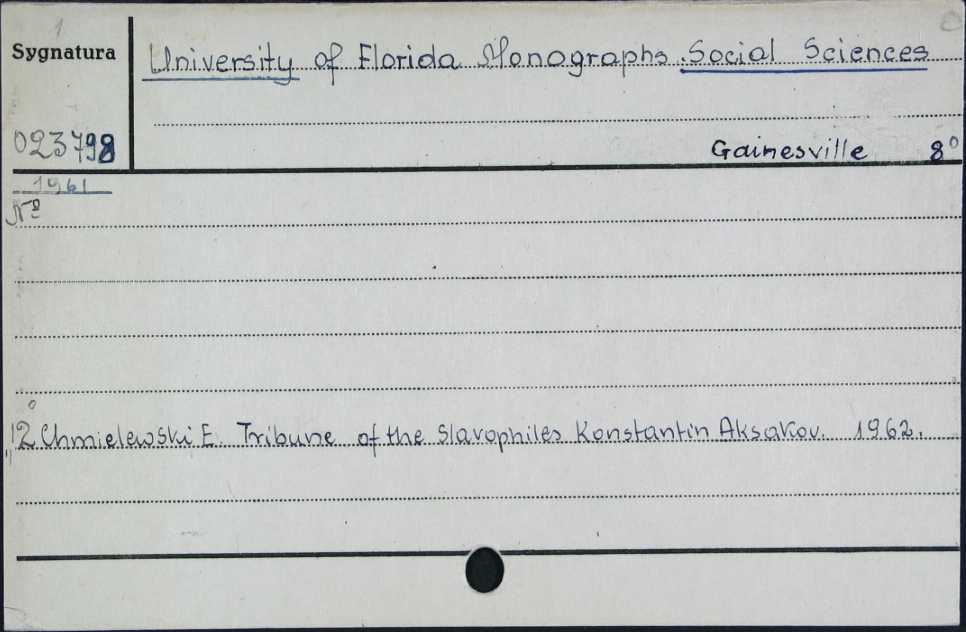 1
Sygnatura
University of Florida Monographs. Social Sciences
023798
Gainesville 8°
1961
Nº
12 Chmielewski E. Tribune of the Slavophiles Konstantin Aksakov. 1962.